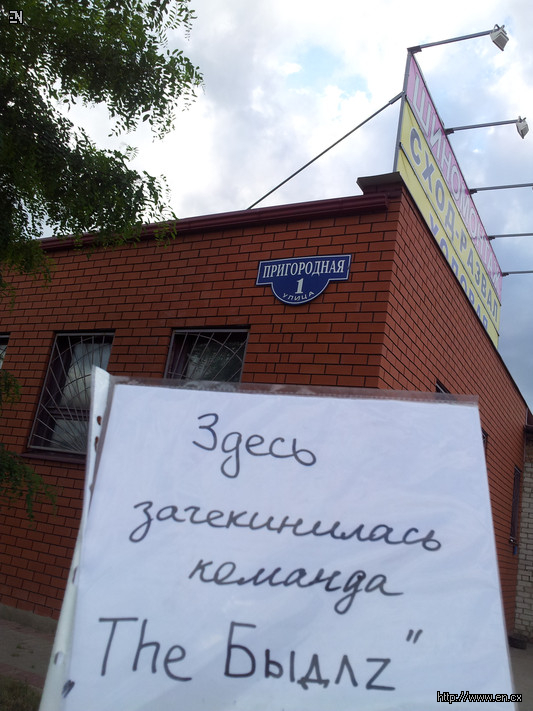 EN
ШИНОМОНТАЖ
СХОД-РАЗВАЛ
ПРИГОРОДНАЯ
1
УЛИЦА
Здесь
зачекинилась
команда
„The Быдлz"
http://www.en.cx